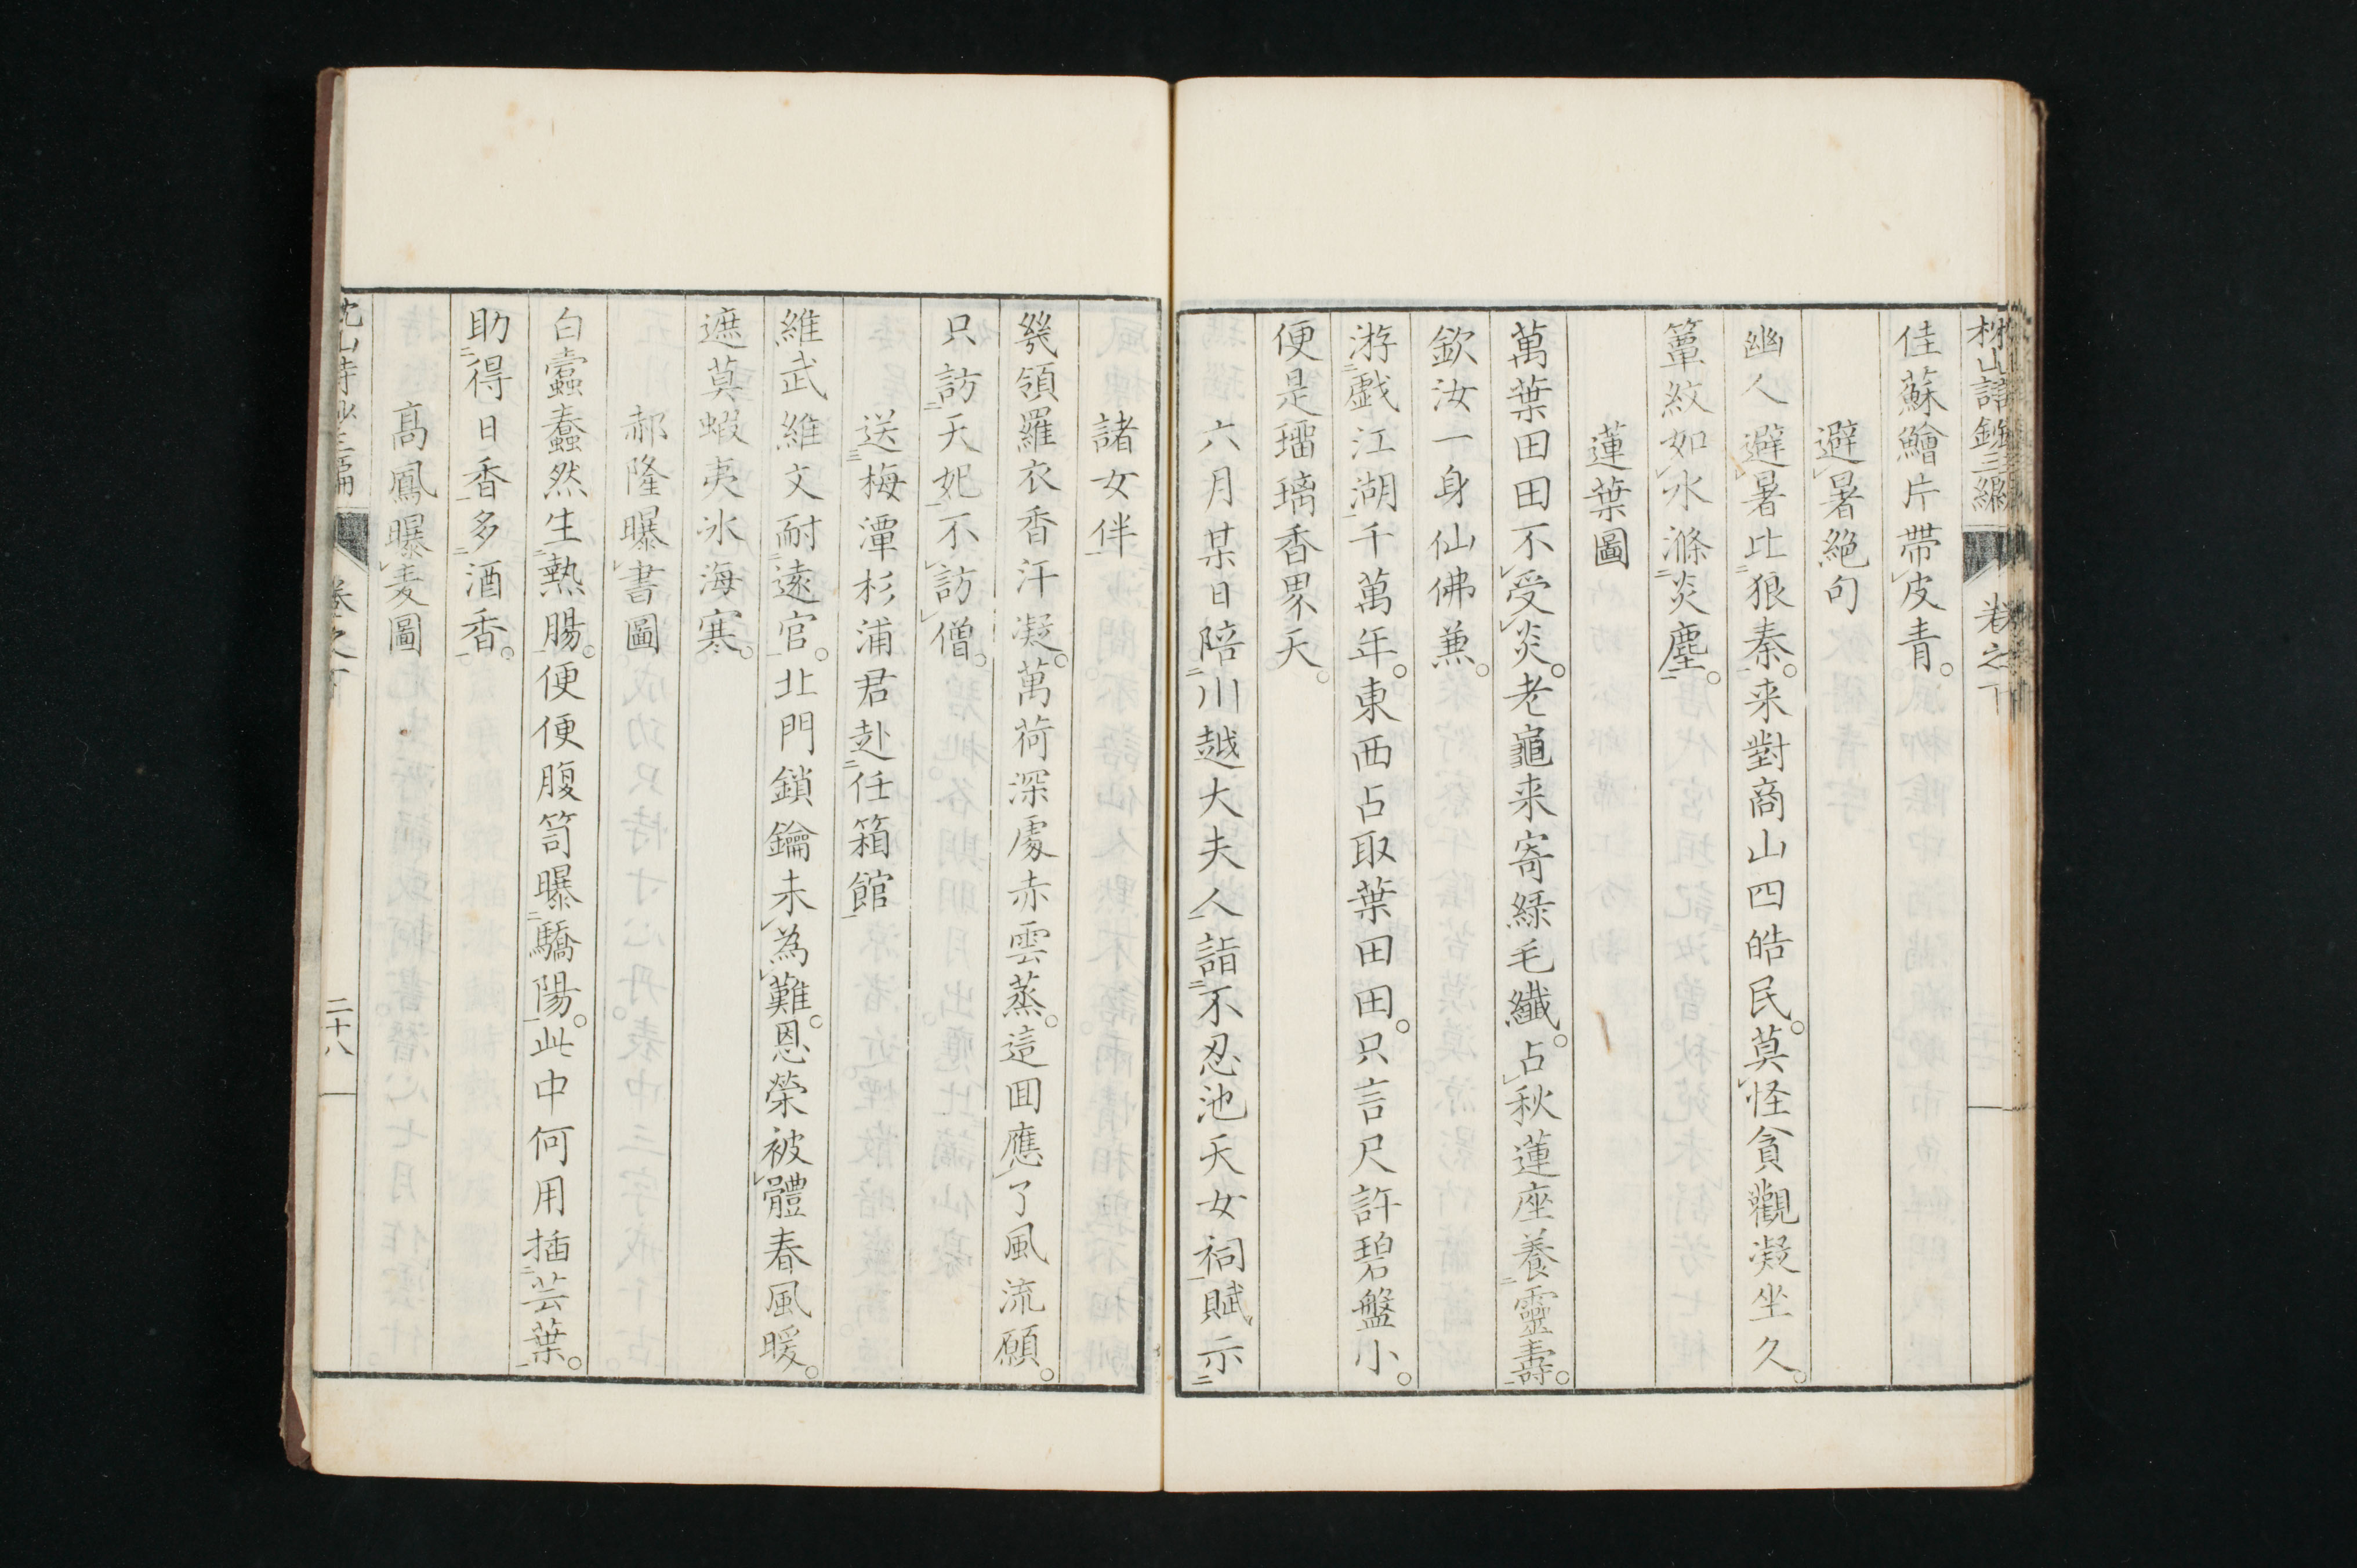 枕山詩鈔三編 卷之下
佳蘇鱠片帶皮青。
避暑絕句
幽人避暑比狼秦。来對商山四皓民。莫怪貪觀凝坐久。
簟紋如水滌炎塵。
蓮葉圖
萬葉田田不受炎。老龜来寄綠毛纖。占秋蓮座養靈壽。
欽汝一身仙佛兼。
游戲江湖千萬年。東西占取葉田田。只言尺許碧盤小。
便是璢璃香界天。
六月某日陪川越大夫人詣不忍池天女祠賦示
諸女伴
幾領羅衣香汗凝。萬荷深處赤雲蒸。這囬應了風流願。
只訪天妃不訪僧。
送梅潭杉浦君赴任箱館
維武維文耐遠官。北門鎖鑰未為難。恩榮被體春風暖。
遮莫蝦夷氷海寒。
郝隆曝書圖
白蠹蠢然生熱腸。便便腹笥曝驕陽。此中何用插芸葉。
助得日香多酒香。
高鳳曝麦圖
枕山詩鈔三編 卷之下 二十八